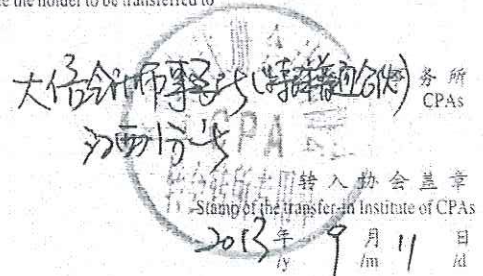 the holder to be transferred to
大信会计师事务所(特殊普通合伙) 务所
CPAs
江西分所
CPA
转入协会盖章
Stamp of the transfer-in Institute of CPAs
2013年 9月 11日
/y /m /d